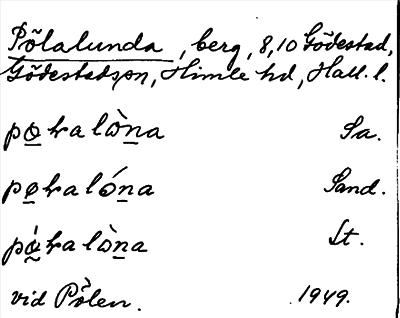 Põlalunda, berg, 8,10 Gödestad,
Gödestads sn, Himle hd, Hall. l.
po̲kalòn̲a Sa.
po̲kalón̲a Sand.
pó̲kalòn̲a Lt.
vid Põlen. 1949.